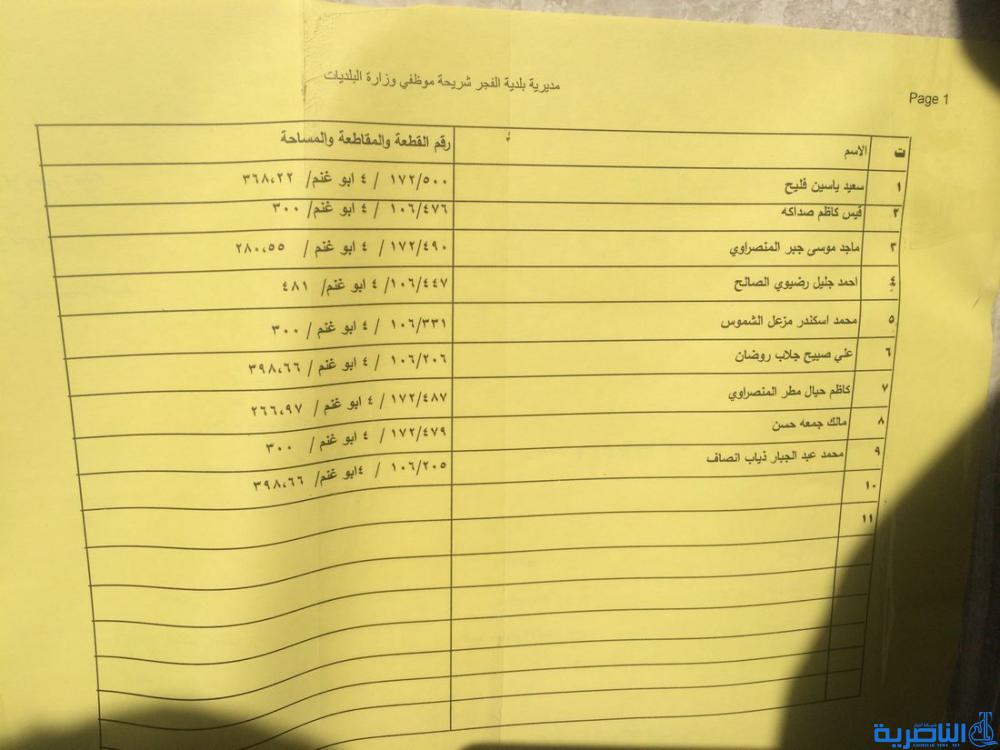 Page 1
مديرية بلدية الفجر شريحة موظفي وزارة البلديات
ت الاسم رقم القطعة والمقاطعة والمساحة
١ سعيد ياسين فليح ١٧٢/٥٠٠ / ٤ ابو غنم/ ٣٦٨،٢٢
٢ قيس كاظم صداكه ١٠٦/٤٧٦ / ٤ ابو غنم/ ٣٠٠
٣ ماجد موسى جبر المنصراوي ١٧٢/٤٩٠ / ٤ ابو غنم / ٢٨٠،٥٥
٤ احمد جليل رضيوي الصالح ١٠٦/٤٤٧/ ٤ ابو غنم/ ٤٨١
٥ محمد اسكندر مزعل الشموس ١٠٦/٣٣١ / ٤ ابو غنم/ ٣٠٠
٦ علي صبيح جلاب روضان ١٠٦/٢٠٦ / ٤ ابو غنم/ ٣٩٨،٦٦
٧ كاظم حيال مطر المنصراوي ١٧٢/٤٨٧ / ٤ ابو غنم/ ٢٦٦،٩٧
٨ مالك جمعه حسن ١٧٢/٤٧٩ / ٤ ابو غنم / ٣٠٠
٩ محمد عبد الجبار ذياب انصاف ١٠٦/٢٠٥ / ٤ابو غنم/ ٣٩٨،٦٦
١٠
١١
الناصرية